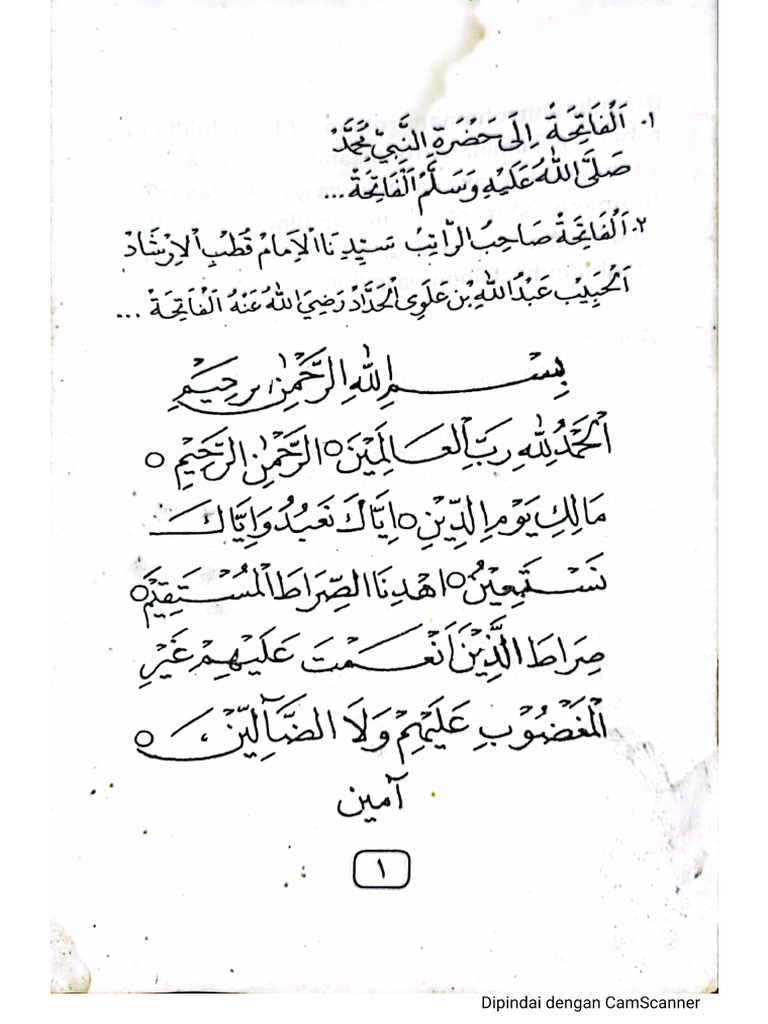 ١. اَلْفَاتِحَةُ اِلَى حَضْرَةِ النَّبِيِّ مُحَمَّدٍ
صَلَّى اللهُ عَلَيْهِ وَسَلَّمْ اَلْفَاتِحَةْ...
٢. اَلْفَاتِحَةْ صَاحِبُ الرَّاتِبُ سَيِّدِنَا الْاِمَامْ قُطْبِ الْاِرْشَادْ
اَلْحَبِيْبْ عَبْدُ اللهِ بْنِ عَلَوِى الْحَدَّادْ رَضِيَ اللهُ عَنْهُ اَلْفَاتِحَةْ ...
بِسْمِ اللهِ الرَّحْمٰنِ الرَّحِيْمِ
اَلْحَمْدُ لِلّٰهِ رَبِّ الْعَالَمِيْنَ ○ الرَّحْمٰنِ الرَّحِيْمِ ○
مَالِكِ يَوْمِ الدِّيْنِ ○ اِيَّاكَ نَعْبُدُ وَاِيَّاكَ
نَسْتَعِيْنُ ○ اهْدِنَا الصِّرَاطَ الْمُسْتَقِيْمَ ○
صِرَاطَ الَّذِيْنَ اَنْعَمْتَ عَلَيْهِمْ غَيْرِ
الْمَغْضُوْبِ عَلَيْهِمْ وَلَا الضَّآلِّيْنَ، ○
آمين
١
Dipindai dengan CamScanner